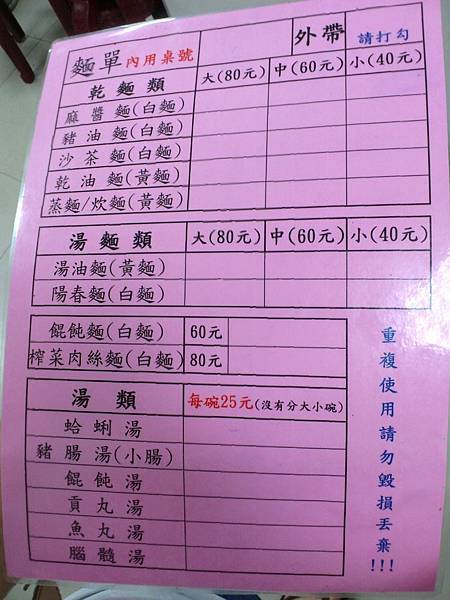 麵單 內用桌號 外帶 請打勾
乾麵類 大(80元) 中(60元) 小(40元)
麻醬麵(白麵)
豬油麵(白麵)
沙茶麵(白麵)
乾油麵(黃麵)
蒸麵/炊麵(黃麵)
湯麵類 大(80元) 中(60元) 小(40元)
湯油麵(黃麵)
陽春麵(白麵)
餛飩麵(白麵) 60元
榨菜肉絲麵(白麵) 80元
湯類 每碗25元(沒有分大小碗)
蛤蜊湯
豬腸湯(小腸)
餛飩湯
貢丸湯
魚丸湯
腦髓湯
重複使用請勿毀損丟棄!!!